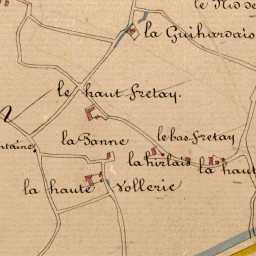 le Nid de
la Guihardais
le haut Fretay.
la Bonne
le bas Fretay
ntaine
la hirlais
la haut
la haute Vollerie